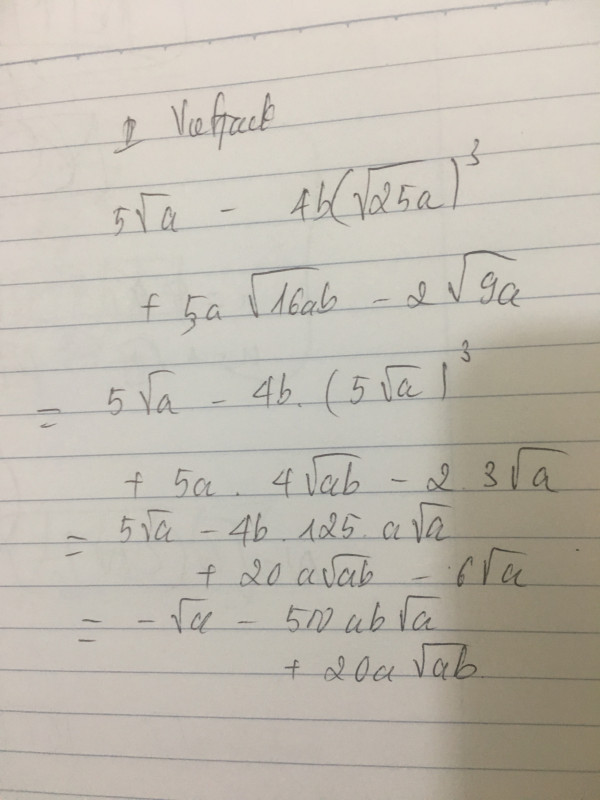 5√a - 4b(√25a)³
+ 5a √16ab - 2 √9a
= 5√a - 4b. (5√a)³
+ 5a . 4√ab - 2. 3√a
= 5√a - 4b . 125. a√a
+ 20 a√ab - 6√a
= -√a - 500 ab√a
+ 20a √ab